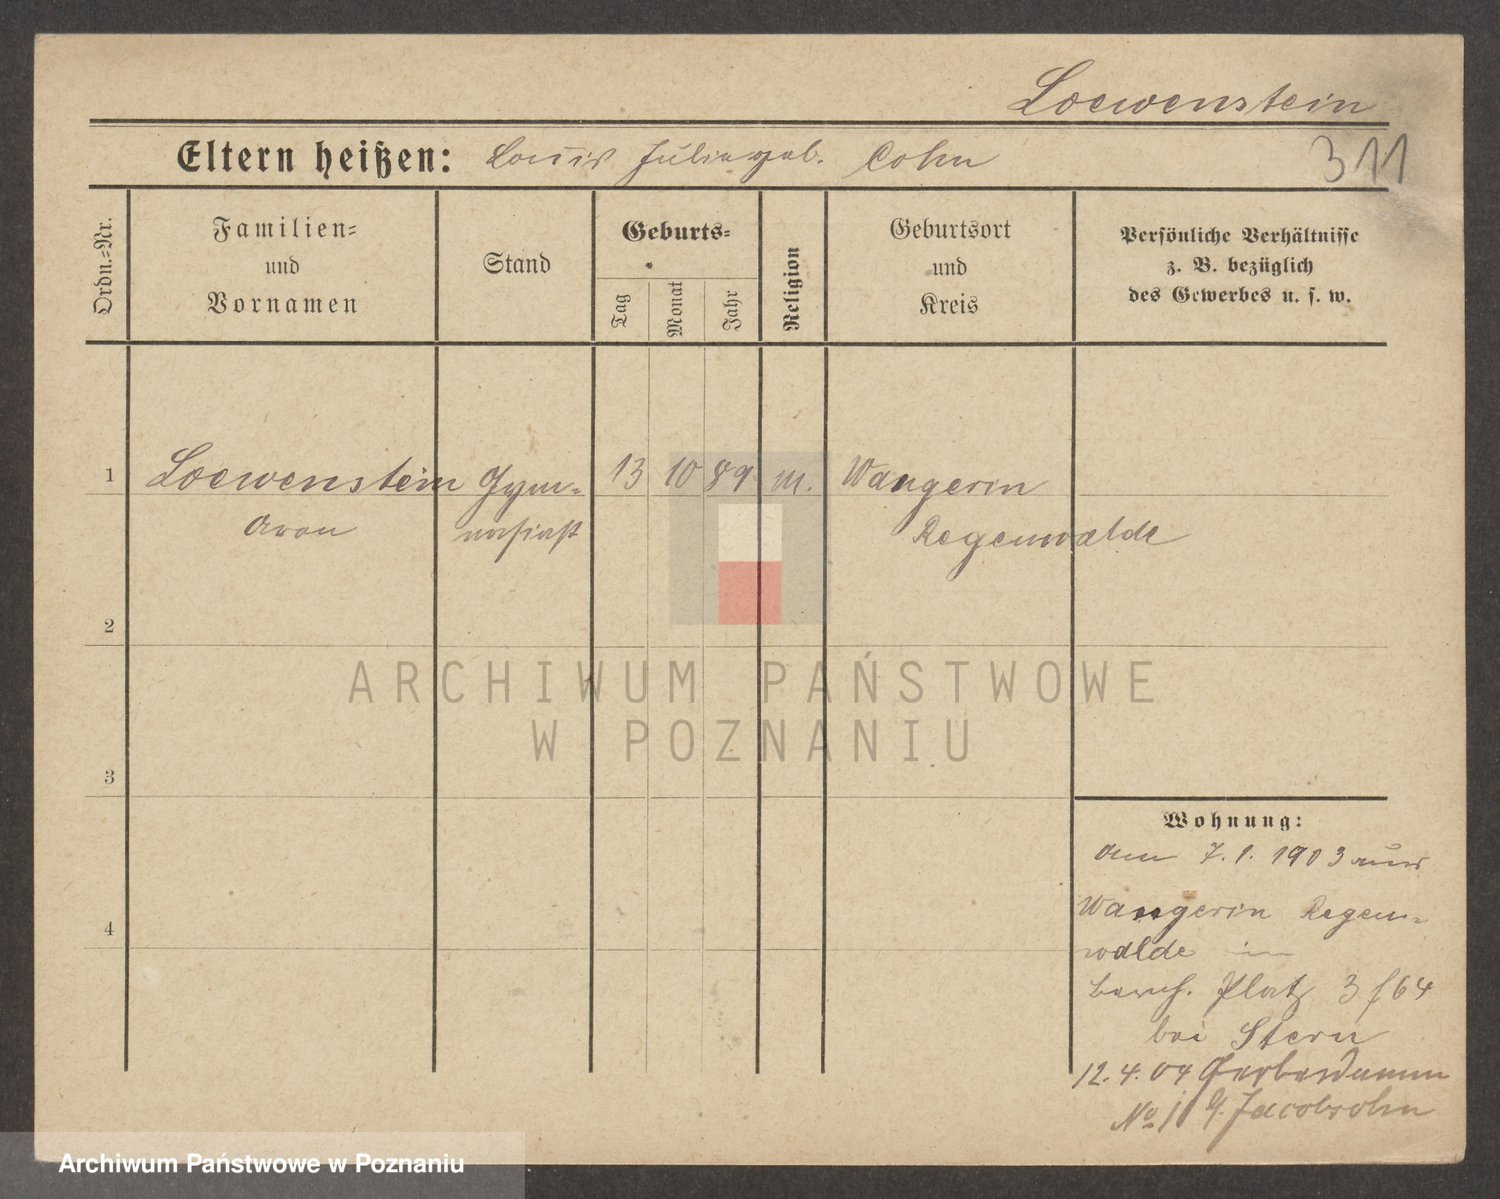 Loewenstein
Eltern heißen: Louis Julie geb. Cohn
311
Ordn.-Nr.
Familien-
und
Vornamen
Stand
Geburts-
Tag
Monat
Jahr
Religion
Geburtsort
und
Kreis
Persönliche Verhältnisse
z. B. bezüglich
des Gewerbes u. s. w.
1 Loewenstein Gym- 13 10 89 m. Wangerin
Aron nasiast Regenwalde
2
ARCHIWUM PAŃSTWOWE
W POZNANIU
3
Wohnung:
7.1.1903 aus
4
Wangerin Regen-
walde in
Platz 3 64
bei Stern
12.4.04 Gerberdamm
No 1 Jacobsohn
Archiwum Państwowe w Poznaniu